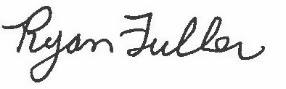 Ryan Fuller